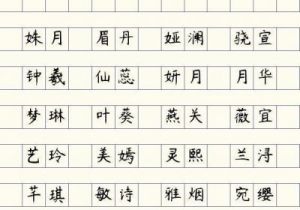 姝月 眉丹 娅澜 骁宣
钟羲 仙蕊 妍月 月华
梦琳 叶葵 燕关 薇宜
艺玲 美嫣 灵熙 兰浔
芊琪 敏诗 雅烟 宛缨